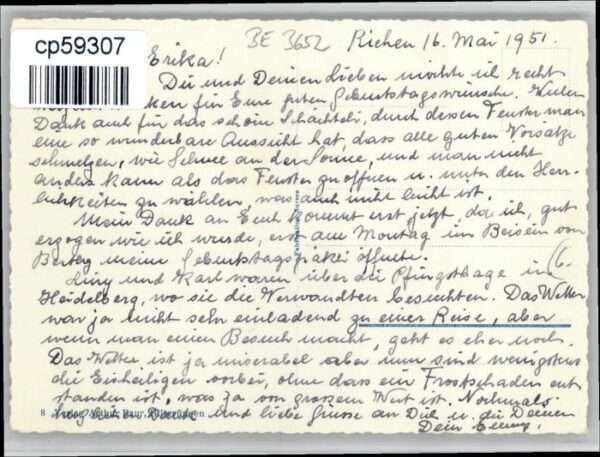 cp59307
BE 3652 Riehen 16. Mai 1951.
Erika!
Dir und Deinen Lieben möchte ich recht
für Eure guten Geburtstagswünsche. Vielen
Dank auch für das schöne Schachteli, durch dessen Fenster man
eine so wunderbare Aussicht hat, dass alle guten Vorsätze
schmelzen, wie Schnee an der Sonne, und man nicht
anders kann als das Fenster zu öffnen u. unter den Herr-
lichkeiten zu wählen, was auch nicht leicht ist.
Mein Dank an Euch kommt erst jetzt, da ich, gut
erzogen wie ich wurde, erst am Montag im Beisein von
Berthy meine Geburtstagspäckli öffnete.
Liny und Karl waren über die Pfingsttage in
Heidelberg, wo sie die Verwandten besuchten. Das Wetter
war ja nicht sehr einladend zu einer Reise, aber
wenn man einen Besuch macht, geht es eher noch.
Das Wetter ist ja miserabel aber nun sind wenigstens
die Eisheiligen vorbei, ohne dass ein Frostschaden ent-
standen ist, was ja von grossem Wert ist. Nochmals
Dank und liebe Grüsse an Dich u. die Deinen
Dein